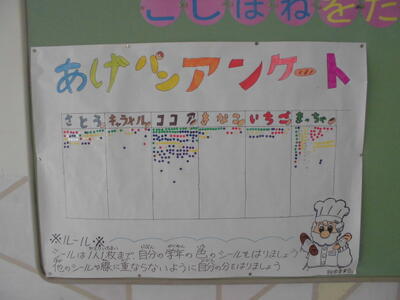 こしぼねをた
あげパンアンケート
さとう キャラメル ココア きなこ いちご まっちゃ
※ルール※
シールは1人1枚まで、自分の学年の色のシールをはりましょう
他のシールや線に重ならないように自分の分をはりましょう